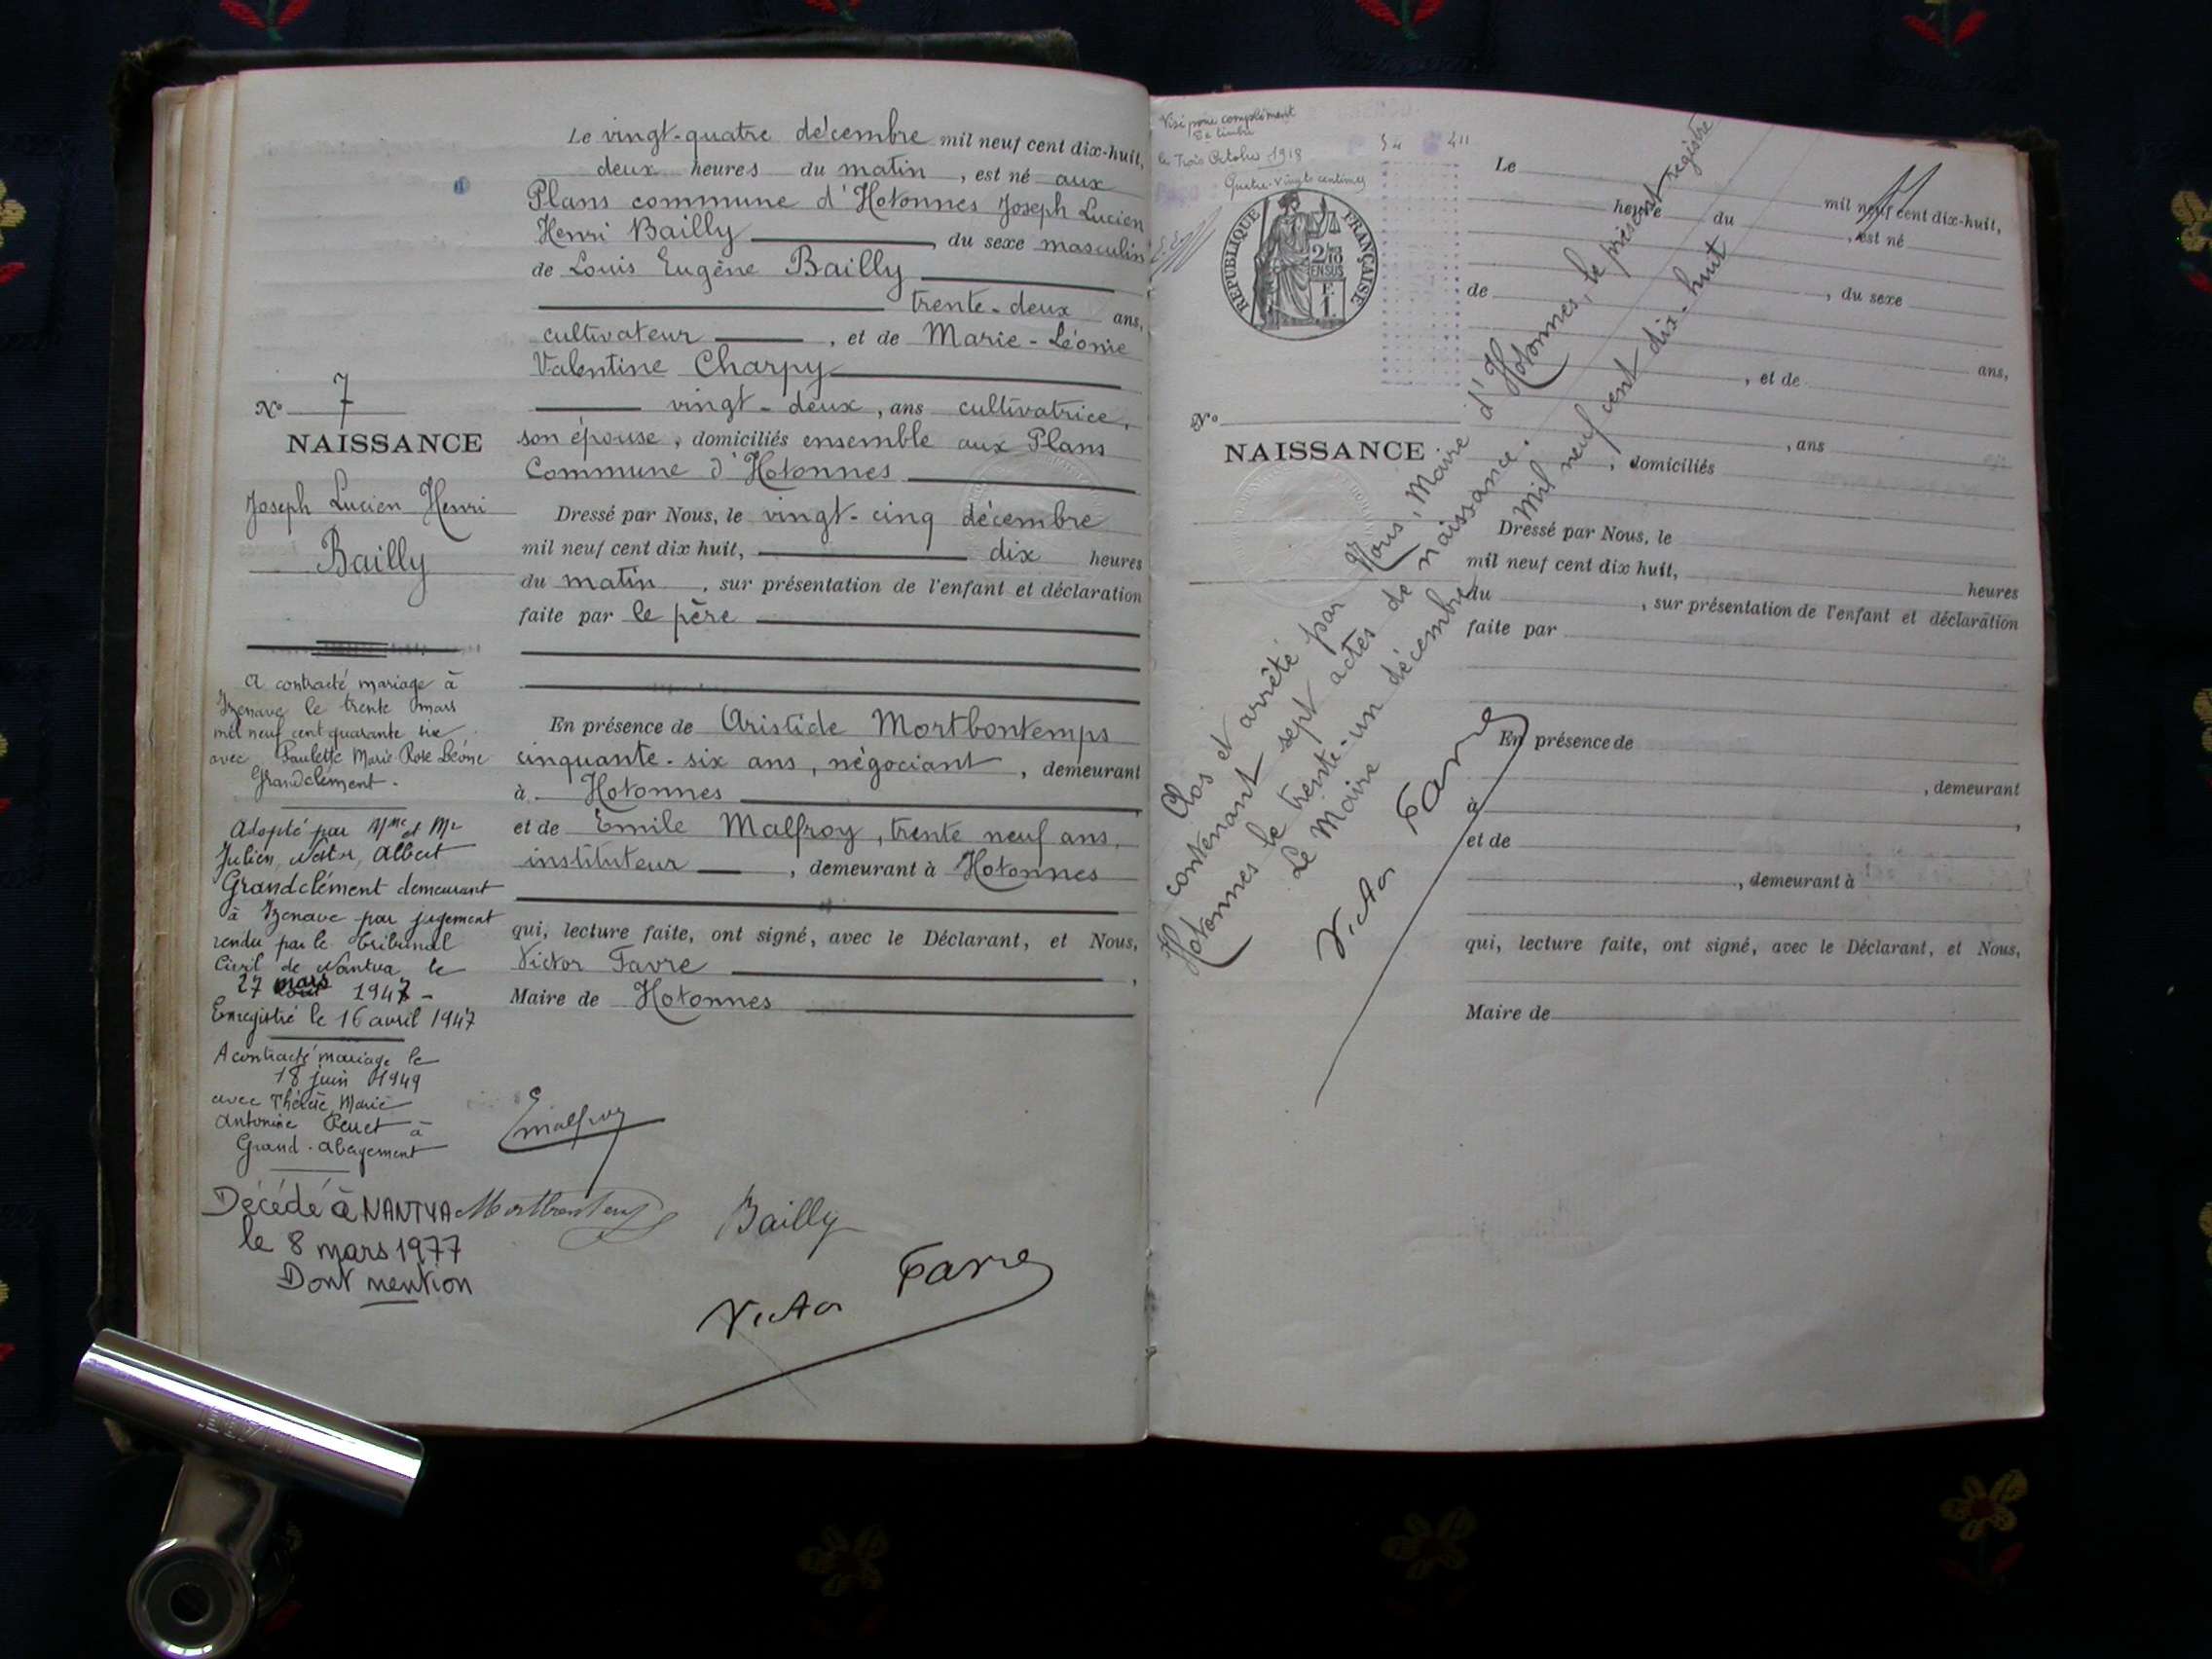 Le vingt-quatre décembre mil neuf cent dix-huit,
deux heures du matin, est né aux
Plans commune d'Hotonnes Joseph Lucien
Henri Bailly, du sexe masculin
de Louis Eugène Bailly
trente-deux ans,
cultivateur, et de Marie-Léonie
Valentine Charpy
vingt-deux, ans cultivatrice,
son épouse, domiciliés ensemble aux Plans
Commune d'Hotonnes
Dressé par Nous, le vingt-cinq décembre
mil neuf cent dix huit, dix heures
du matin, sur présentation de l'enfant et déclaration
faite par le père
En présence de Aristide Mortbontemps
cinquante-six ans, négociant, demeurant
à Hotonnes,
et de Emile Malfroy, trente neuf ans,
instituteur, demeurant à Hotonnes
qui, lecture faite, ont signé, avec le Déclarant, et Nous,
Victor Favre,
Maire de Hotonnes
Emalfroy
Mortbontemps Bailly
Victor Favre
No 7
NAISSANCE
Joseph Lucien Henri
Bailly
A contracté mariage à
Izenave le trente mars
mil neuf cent quarante six
avec Paulette Marie Rose Léone
Grandclément.
Adopté par Mme et Mr
Julien, Nestor, Albert
Grandclément demeurant
à Izenave par jugement
rendu par le tribunal
Civil de Nantua le
27 mars 1947 -
Enregistré le 16 avril 1947
A contracté mariage le
18 juin 1949
avec Thérèse Marie
Antonine Perret à
Grand-Abergement
Décédé à NANTUA
le 8 mars 1977
Dont mention
Visé pour complément
de timbre
le Trois Octobre 1918
Quatre-vingt centimes
REPUBLIQUE FRANÇAISE
2/10
EN SUS
F.
1.
No
NAISSANCE
Le mil neuf cent dix-huit,
heure du, est né
de, du sexe
ans,
, et de
, ans
, domiciliés
Dressé par Nous, le
mil neuf cent dix huit, heures
du, sur présentation de l'enfant et déclaration
faite par
En présence de
, demeurant
à,
et de
, demeurant à
qui, lecture faite, ont signé, avec le Déclarant, et Nous,
Maire de
Clos et arrêté par Nous, Maire d'Hotonnes, le présent registre
contenant sept actes de naissance.
Hotonnes le trente-un décembre Mil neuf cent dix-huit
Le Maire
Victor Favre